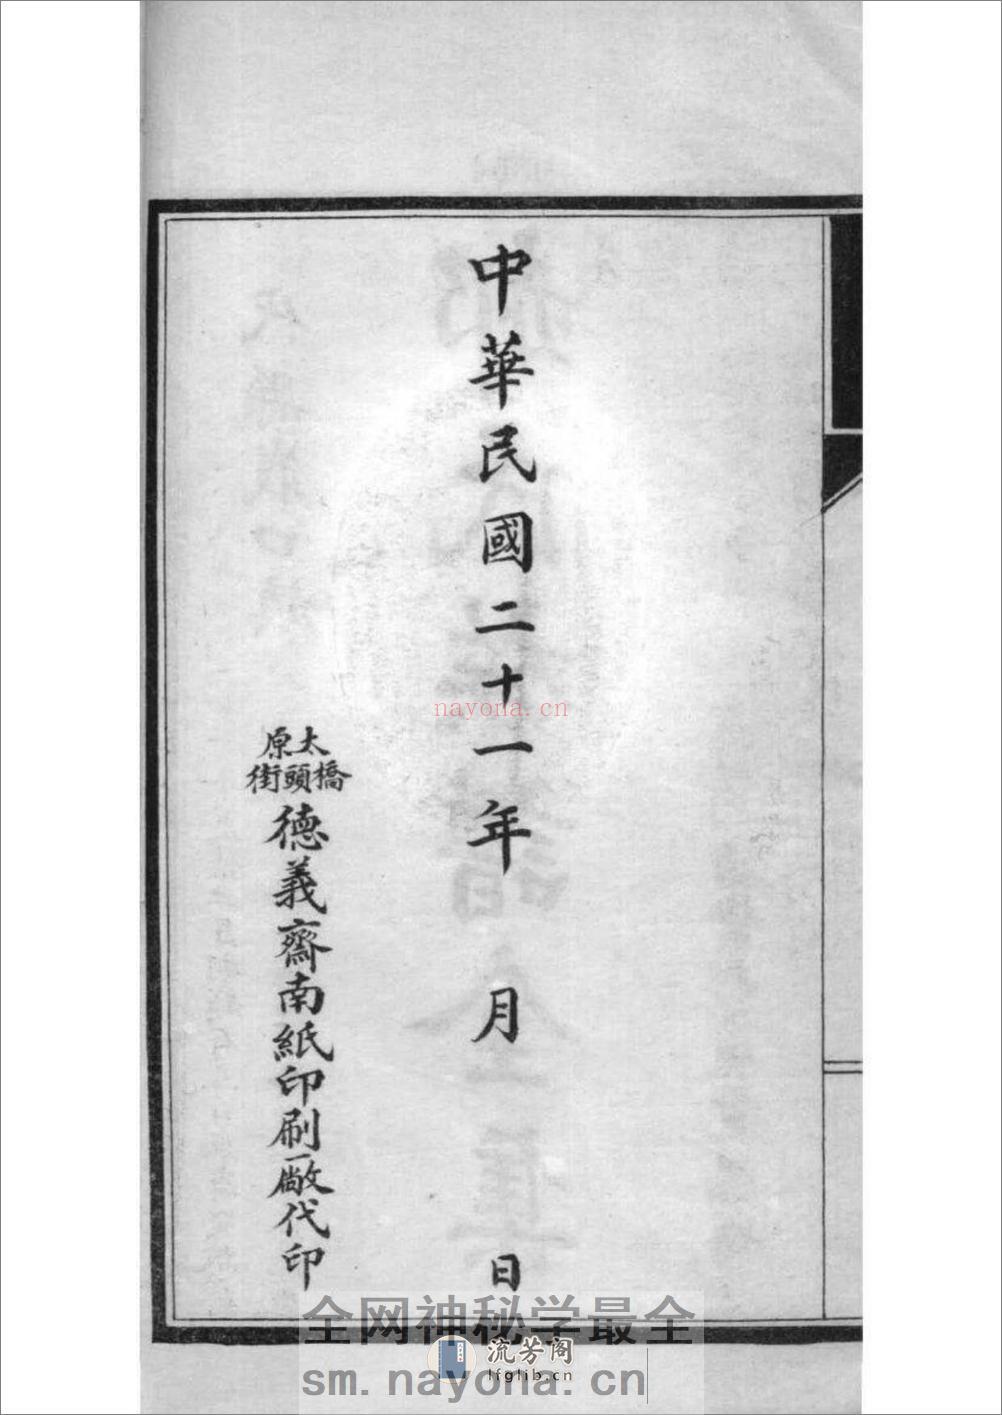 中華民國二十一年 月 日
太原
橋頭街
德義齋南紙印刷廠代印
nayona.cn
全网神秘学最全
流芳阁
lfglib.cn
sm.nayona.cn